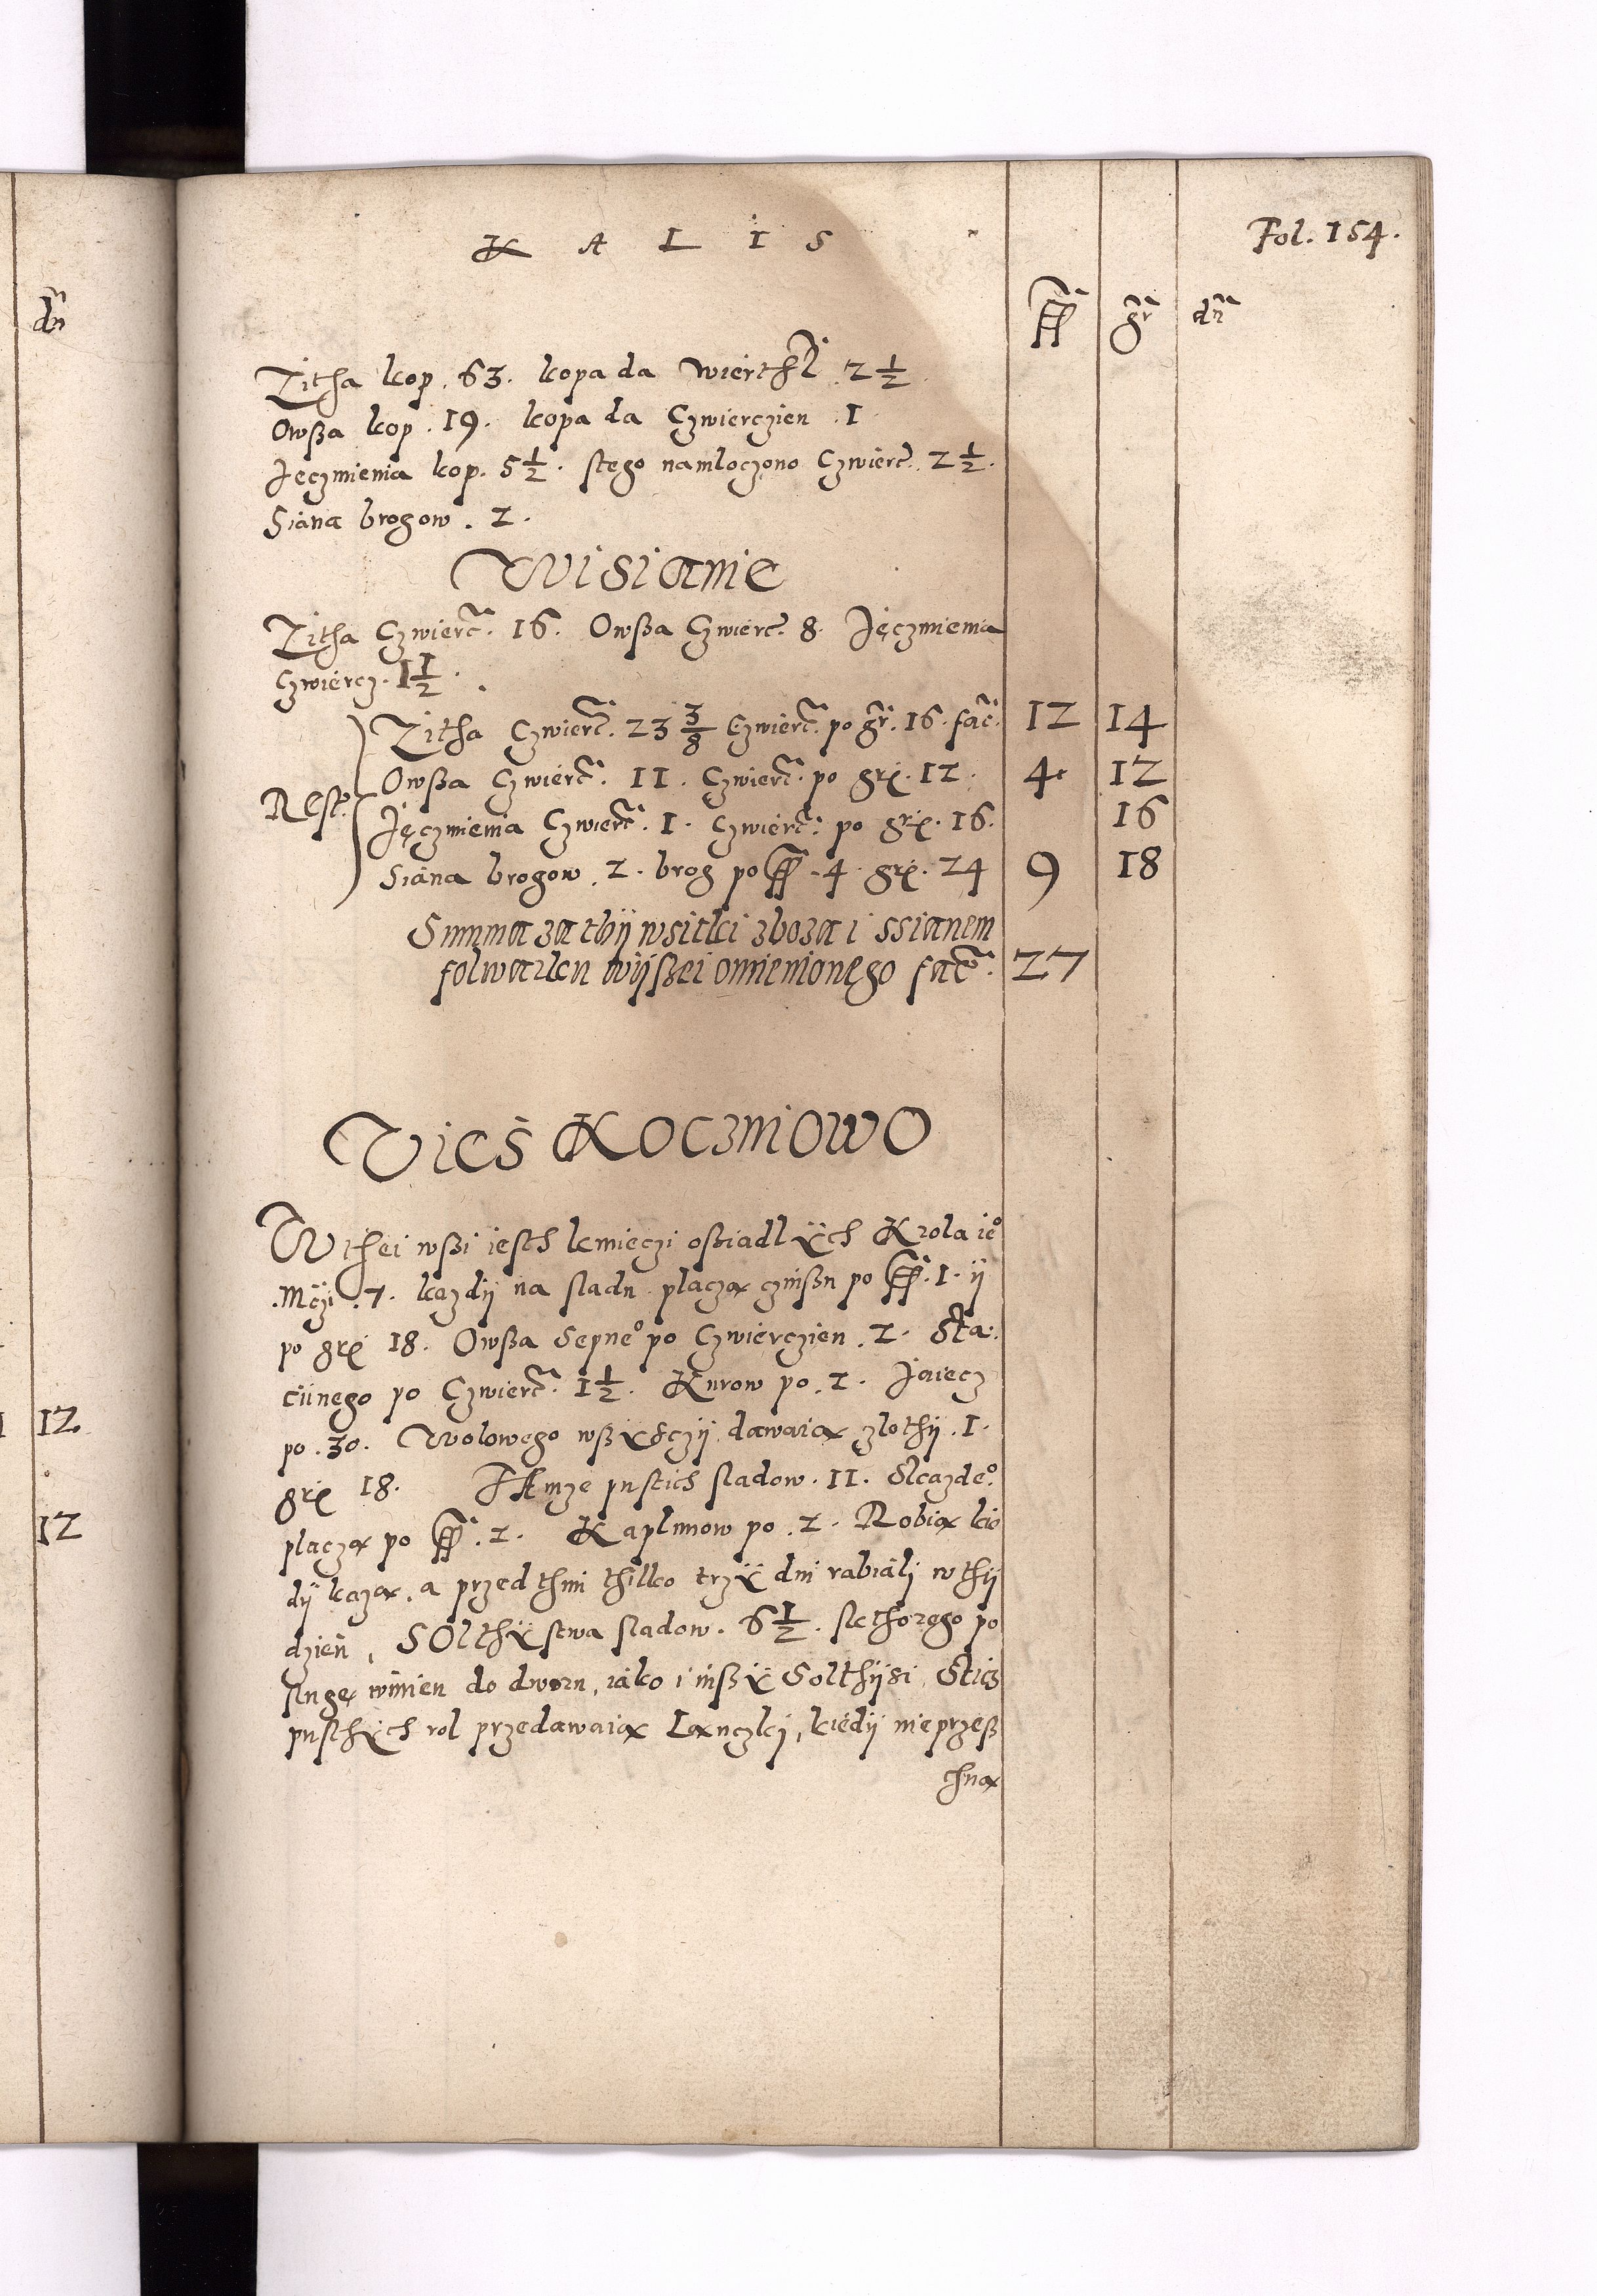 KALIS
Fol. 154.
ff gr dn
dn
Zitha kop. 63. kopa da wierthl 2 1/2
Owßa kop. 19. kopa da Czwierczien .1
Jęczmienia kop. 5 1/2. stego namloczono Czwierc. 2 1/2.
Siana brogow. 2.
Wisianie
Zitha Czwierc. 16. Owßa Czwierc. 8. Jęczmienia
Czwiercz. 1 1/2.
Zitha Czwierc. 23 3/8 Czwierc. po gr. 16. fac. 12 14
Owßa Czwierc. 11. Czwierc. po gri. 12. 4 12
Rest.
Jęczmienia Czwierc. 1. Czwierc. po gri. 16. 16
Siana brogow. 2. brog po ff. 4. gri. 24 9 18
Summa za thij wsitki zboza i ssianem
folwarku wijßei omienionego fac. 27
Vies Koczniowo
W thei wßi iesth kmieczi oßiadlÿch Krola ieo
Mczi. 7. kazdij na sladu placzą czinßu po ff. 1. ij
po gri 18. Owßa Sepneo po Czwierczien. 2. Sta:
ciinego po Czwierc. 1 1/2. Kurow po. 2. Jaiecz
po. 30. Wolowego wßÿsczij dawaią zlothij. 1.
gri 18. TAmze pustich sladow. 11. Skazdeo
placzą po ff. 2. Kaplunow po. 2. Robią kie
dij kazą, a przed thim thilko trzÿ dni rabiali w thij
dzień, SOlthÿstwa sladow. 6 1/2. sktorego po
sługę winien do dworu, iako i inßÿ Solthijsi, Stich
pusthÿch rol przedawaią Lanczki, kiedij nie przeß
thną
12
12